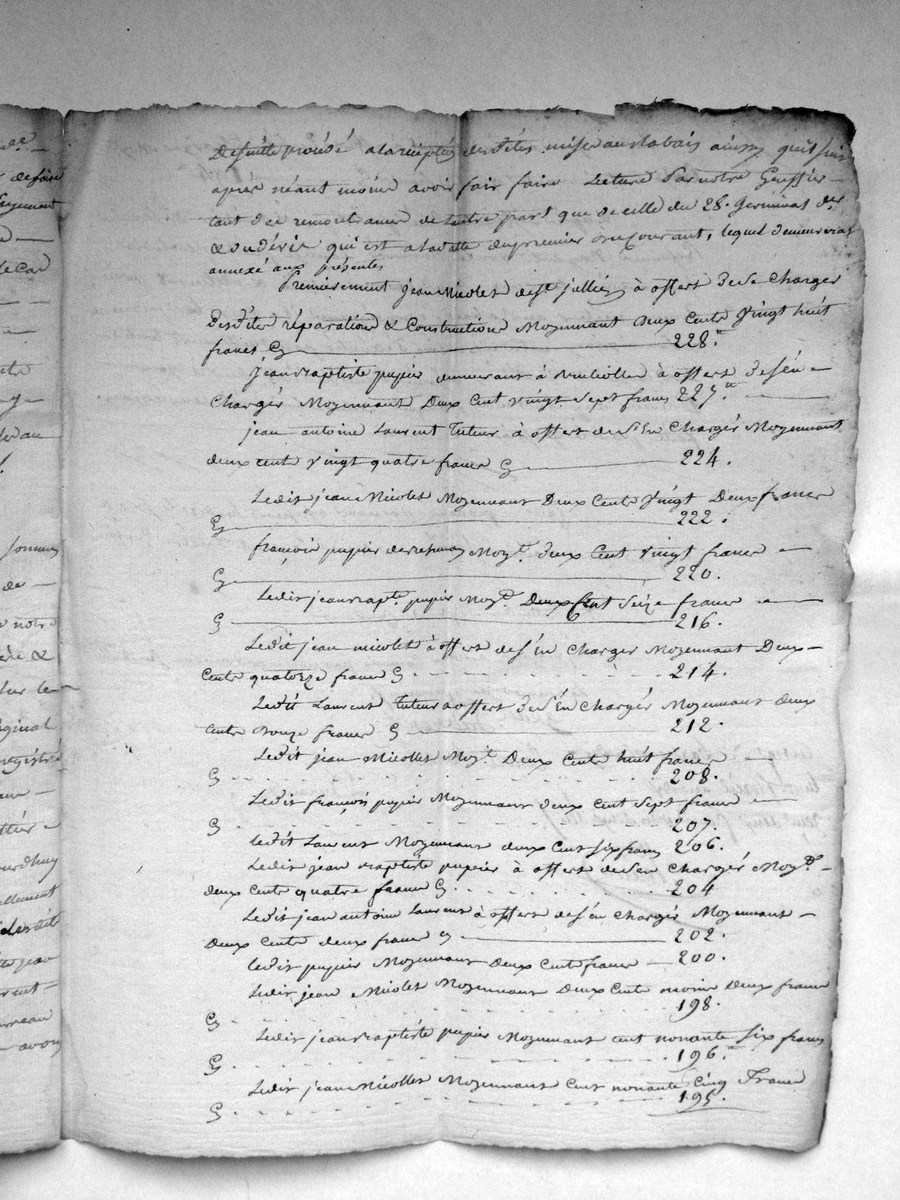 de suite procédé a la réception desdites mise au Rabais ainsy quil suit
après néant moins avoir fait faire Lecture Par notre Greffier
tant de ce remontrances de l'autre part que de celle du 28. Germinal der
& du devis qui est a la datte du premier du Courant, lequel demeurerat
annexé aux présentes
Premièrement jean Nicolet de St jullien à offert de se Charger
desdites réparations & Constructions Moyennant Deux Cents Vingt huit
francs, Cy 228.
Jean Baptiste pupier demeurant à à offert de s'én
Chargér Moyennant Deux Cent Vingt Sept francs 227.
jean antoine Laurent Tuteur à offert de s'En Chargér Moyennant
deux cent Vingt quatre francs Cy 224.
Ledit jean Nicolet Moyennant Deux Cents Vingt Deux francs
Cy 222.
françois pupier Moy.t deux Cent Vingt francs
Cy 220.
Ledit jean Bapt.e pupier Moy.t Deux Cent Seize francs
Cy 216.
Ledit jean nicolet à offert de s'én Chargér Moyennant Deux
Cents quatorze francs Cy 214.
Ledit Laurent Tuteur a offert de s'én Chargér Moyennant deux
Cents Douze francs Cy 212.
Ledit jean Nicollet Moy.t Deux Cents huit francs
Cy 208.
Ledit françois pupier Moyennant deux Cent Sept francs
Cy 207.
ledit Laurent Moyennant deux Cent six francs 206.
Ledit jean Baptiste pupier à offert de s'en Chargér Moy.t
deux Cents quatre francs Cy 204
Ledit jean antoine Laurent à offert de s'én Chargér Moyennant
Deux Cents deux francs Cy 202.
ledit pupier Moyennant Deux Cents francs 200.
Ledit jean Nicolet Moyennant Deux Cents moins Deux francs
Cy 198.
Ledit jean Baptiste pupier Moyennant Cent nonante Six francs
Cy 196.
Ledit jean Nicollet Moyennant Cent nonante Cinq Francs
Cy 195.